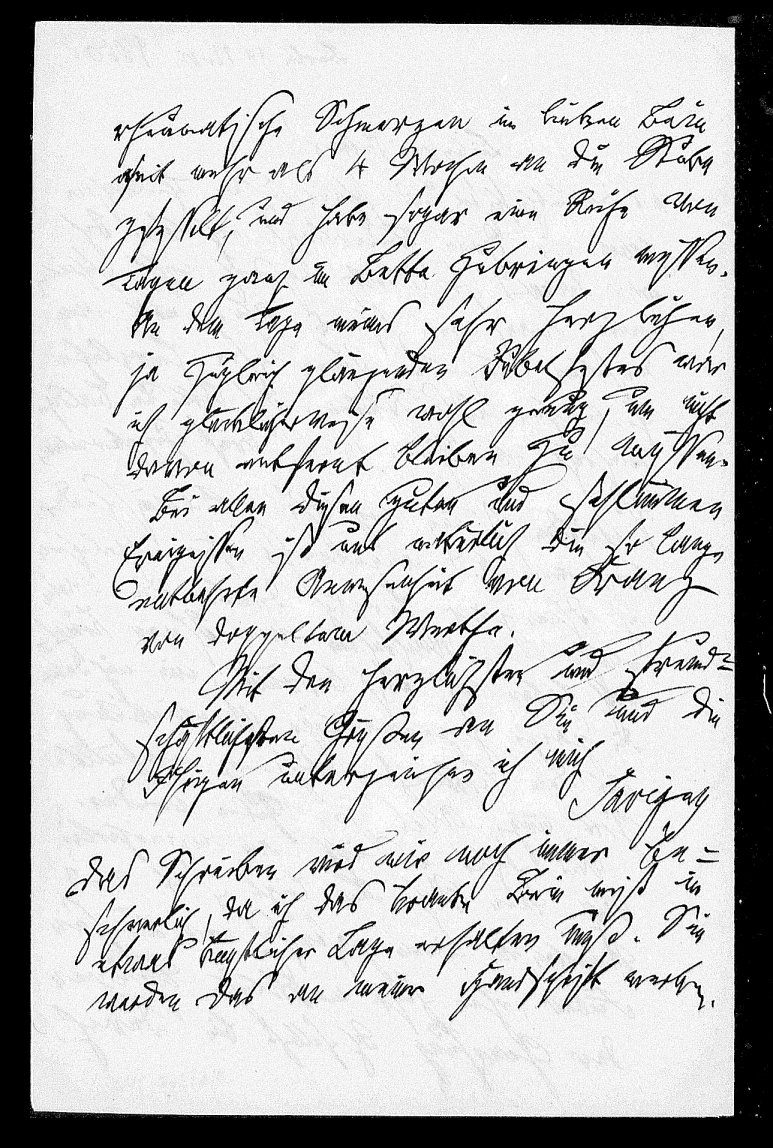 rheumatische Schmerzen im linken Bein
seit mehr als 4 Wochen an die Stube
gefesselt, und habe sogar eine Reihe von
Tagen ganz im Bette zubringen müssen.
An dem Tage meines sehr herzlichen,
ja zugleich glänzenden Jubelfestes war
ich glücklicherweise wohl genug, um nicht
davon entfernt bleiben zu müssen.
Bei allen diesen guten und schlimmen
Ereignissen ist uns natürlich die so lange
entbehrte Anwesenheit von Franz
von doppeltem Werthe.
Mit den herzlichsten und freund=
schaftlichsten Grüßen an Sie und die
Ihrigen unterzeichne ich mich
Savigny
Das Schreiben wird mir noch immer be=
schwerlich, da ich das kranke Bein meist in
etwas künstlicher Lage erhalten muß. Sie
werden das an meiner Handschrift merken.